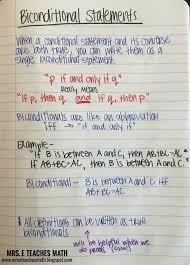 Biconditional Statements
When a conditional statement and its converse
are both true, you can write them as a
single biconditional statement.
"p if and only if q"
Really Means
"If p, then q and if q, then p"
Biconditionals are like an abbreviation
iff → "if and only if"
Example-
"If B is between A and C, then AB+BC=AC
If AB+BC=AC, then B is between A and C."
Biconditional - B is between A and C iff
AB+BC=AC
All definitions can be written as true
biconditionals
will be helpful when we
do proofs (soon)
MRS. E TEACHES MATH
www.mrseteachesmath.blogspot.com